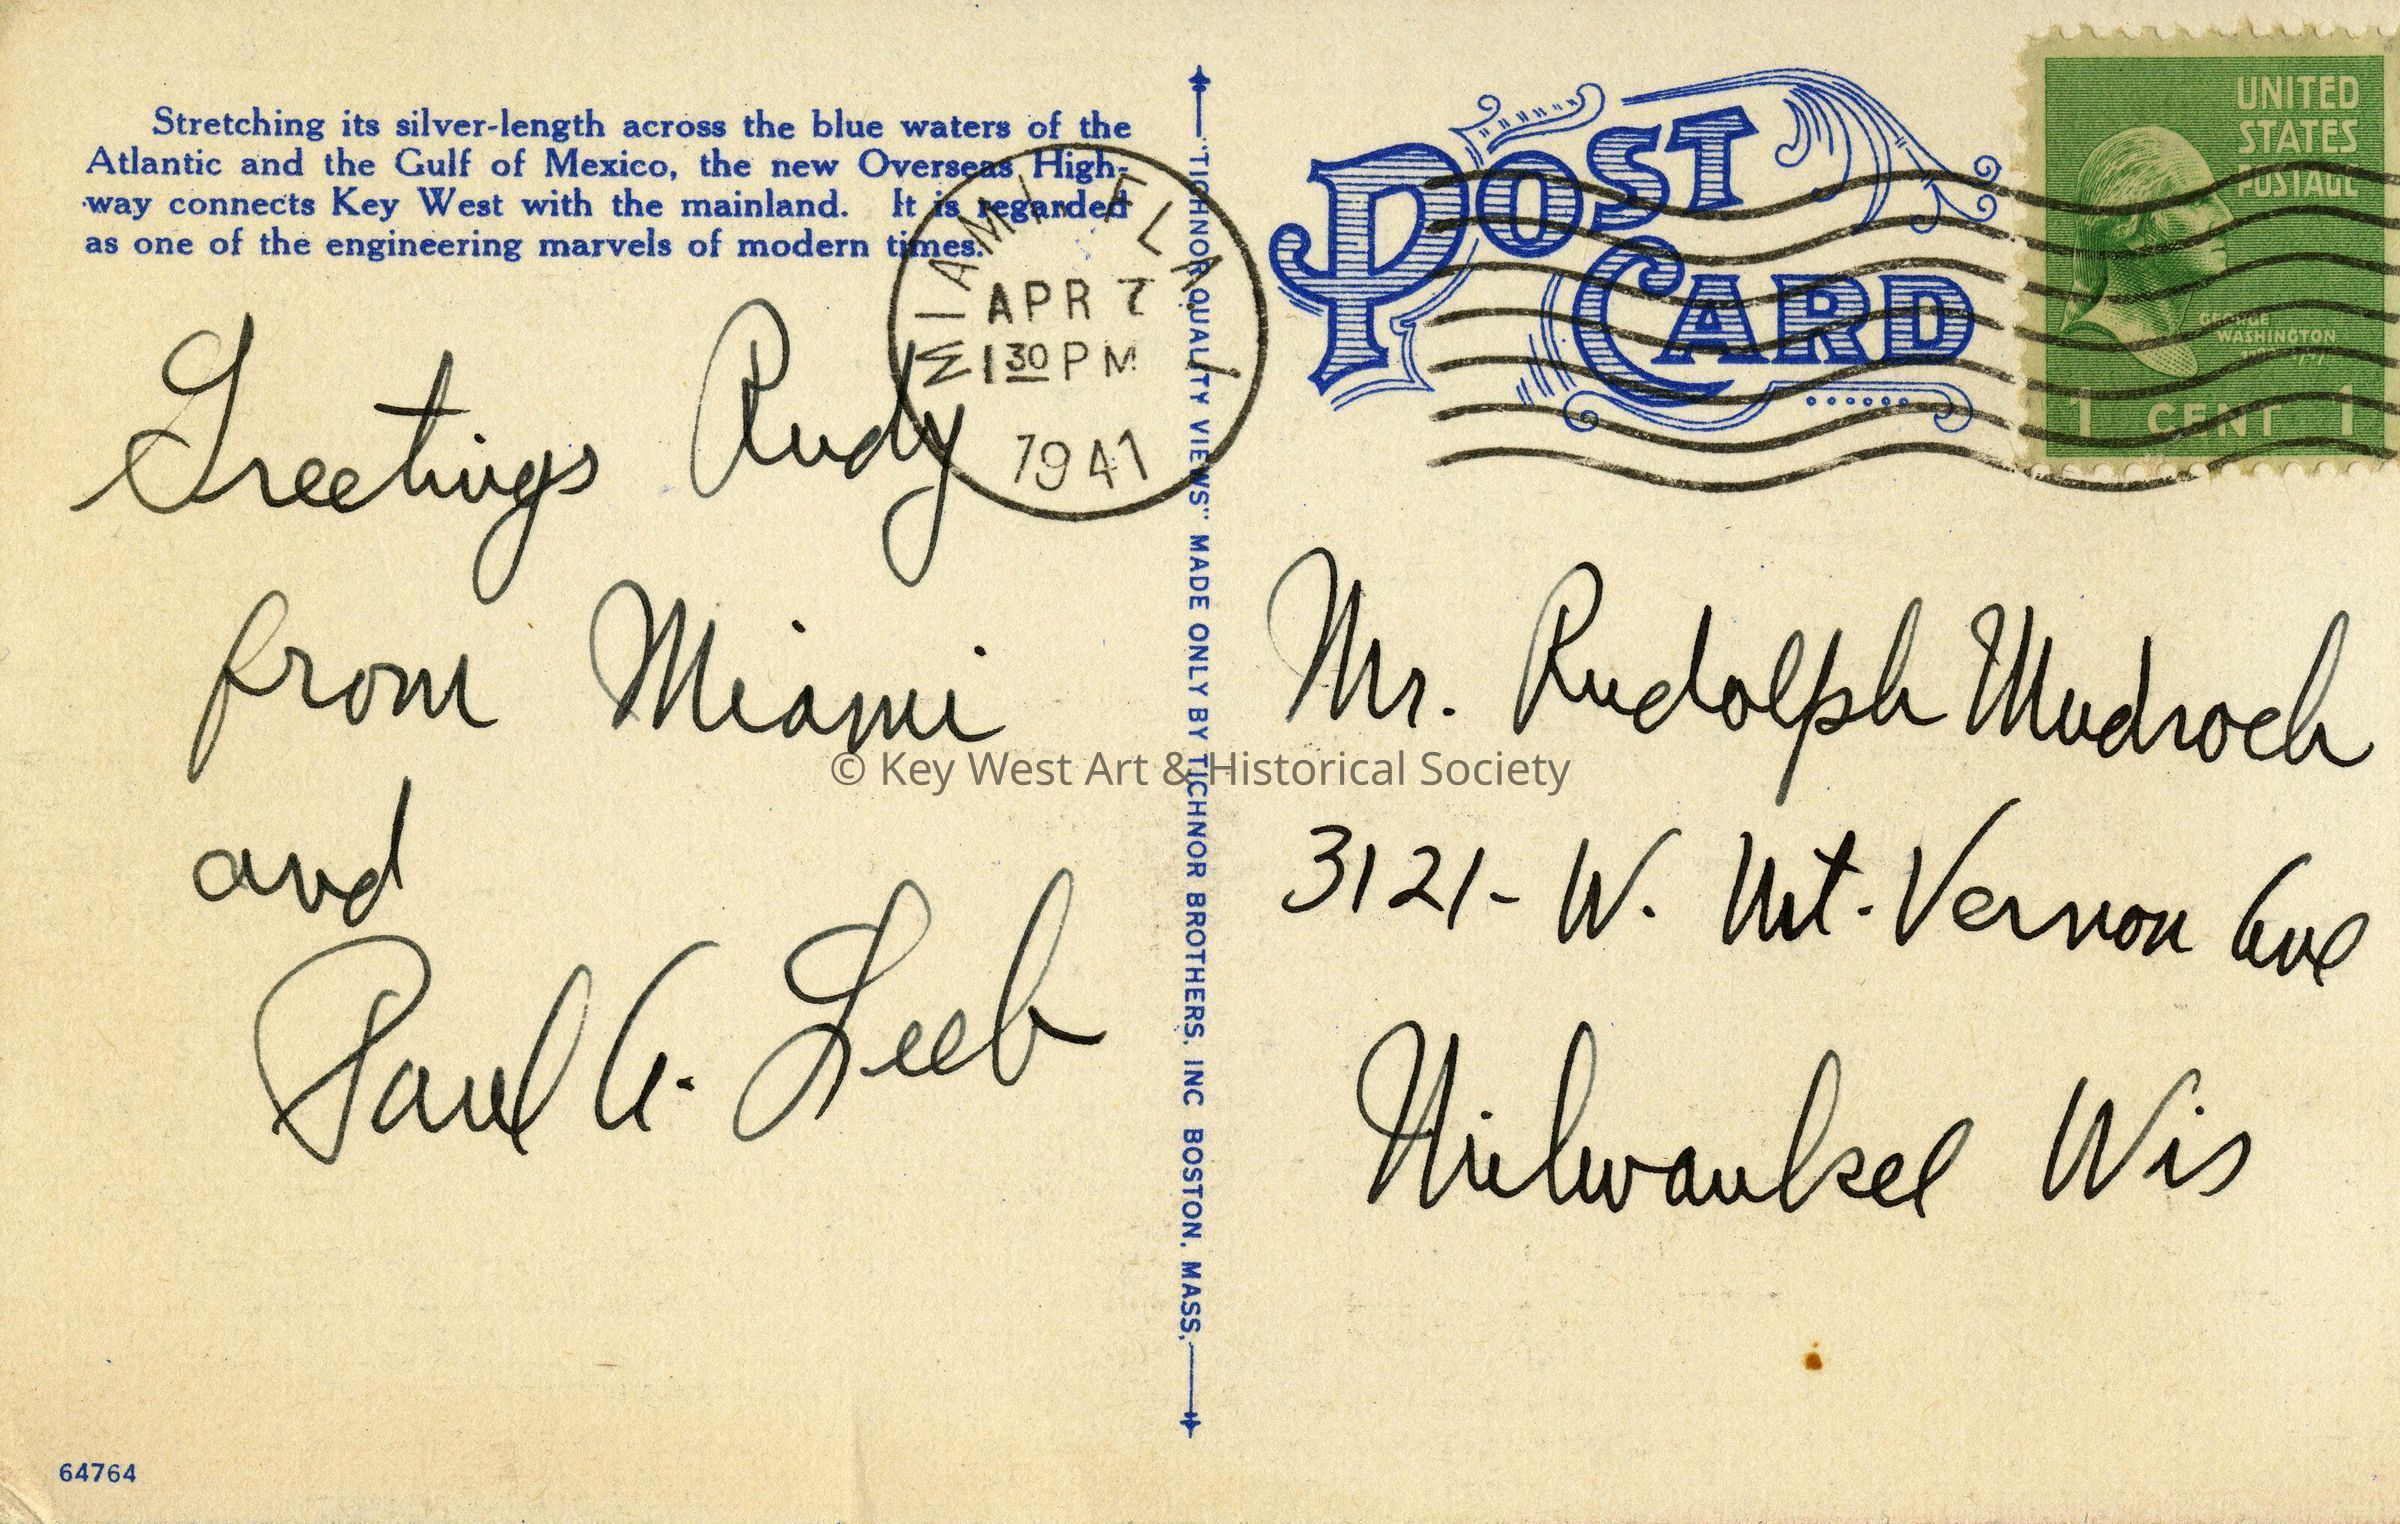 Stretching its silver-length across the blue waters of the
Atlantic and the Gulf of Mexico, the new Overseas High-
way connects Key West with the mainland. It is regarded
as one of the engineering marvels of modern times.
Greetings Rudy
from Miami
and
Paul A. Leeb
64764
"TICHNOR QUALITY VIEWS" MADE ONLY BY TICHNOR BROTHERS, INC BOSTON, MASS.
MIAMI FLA 1
APR 7
1 30 PM
1941
POST
CARD
UNITED
STATES
POSTAGE
GEORGE
WASHINGTON
1 CENT 1
Mr. Rudolph Mudroch
3121- W. Mt. Vernon Ave
Milwaukee Wis
© Key West Art & Historical Society